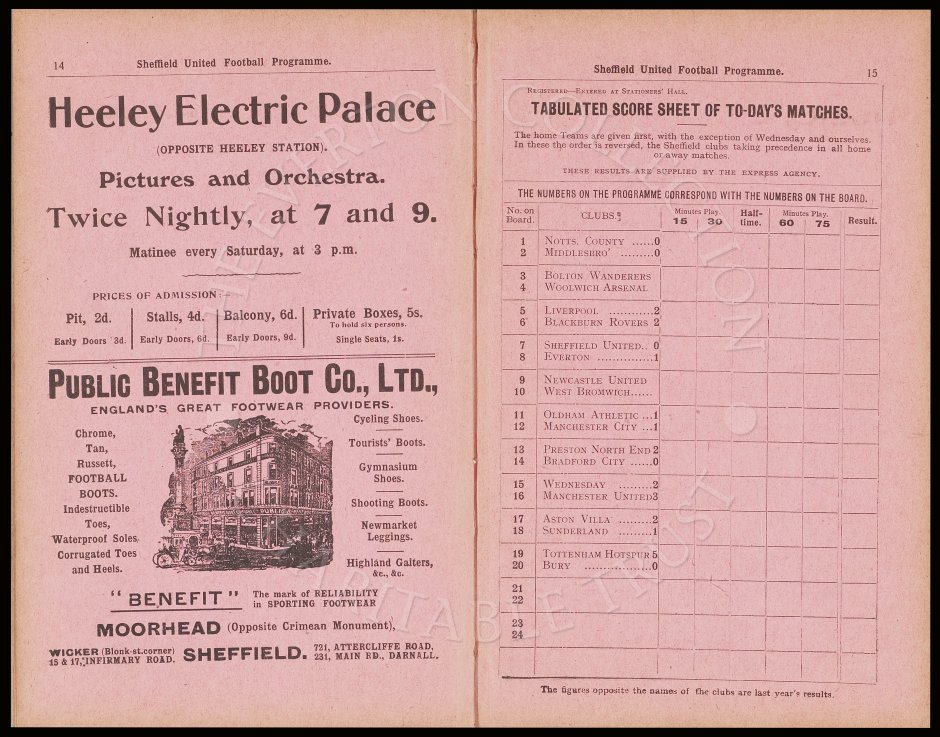 14
Sheffield United Football Programme.
Heeley Electric Palace
(OPPOSITE HEELEY STATION).
Pictures and Orchestra.
Twice Nightly, at 7 and 9.
Matinee every Saturday, at 3 p.m.
PRICES OF ADMISSION:—
Pit, 2d.
Early Doors 3d.
Stalls, 4d.
Early Doors, 6d.
Balcony, 6d.
Early Doors, 9d.
Private Boxes, 5s.
To hold six persons.
Single Seats, 1s.
PUBLIC BENEFIT BOOT CO., LTD.,
ENGLAND'S GREAT FOOTWEAR PROVIDERS.
Chrome,
Tan,
Russett,
FOOTBALL
BOOTS.
Indestructible
Toes,
Waterproof Soles,
Corrugated Toes
and Heels.
PUBLIC
Cycling Shoes.
Tourists' Boots.
Gymnasium
Shoes.
Shooting Boots.
Newmarket
Leggings.
Highland Gaiters,
&c., &c.
"BENEFIT" The mark of RELIABILITY
in SPORTING FOOTWEAR
MOORHEAD (Opposite Crimean Monument),
WICKER (Blonk-st.corner)
15 & 17, INFIRMARY ROAD.
SHEFFIELD.
721, ATTERCLIFFE ROAD,
231, MAIN RD., DARNALL.
Sheffield United Football Programme.
15
REGISTERED—ENTERED AT STATIONERS' HALL.
TABULATED SCORE SHEET OF TO-DAY'S MATCHES.
The home Teams are given first, with the exception of Wednesday and ourselves.
In these the order is reversed, the Sheffield clubs taking precedence in all home
or away matches.
THESE RESULTS ARE SUPPLIED BY THE EXPRESS AGENCY.
THE NUMBERS ON THE PROGRAMME CORRESPOND WITH THE NUMBERS ON THE BOARD.
No. on Board. CLUBS. Minutes Play. 15 30 Half-time. Minutes Play. 60 75 Result.
1 NOTTS. COUNTY ......0
2 MIDDLESBRO' .........0
3 BOLTON WANDERERS
4 WOOLWICH ARSENAL
5 LIVERPOOL ............2
6 BLACKBURN ROVERS 2
7 SHEFFIELD UNITED.. 0
8 EVERTON ...............1
9 NEWCASTLE UNITED
10 WEST BROMWICH......
11 OLDHAM ATHLETIC ...1
12 MANCHESTER CITY ...1
13 PRESTON NORTH END 2
14 BRADFORD CITY ......0
15 WEDNESDAY .........2
16 MANCHESTER UNITED3
17 ASTON VILLA .........2
18 SUNDERLAND .........1
19 TOTTENHAM HOTSPUR 5
20 BURY ..................0
21
22
23
24
The figures opposite the names of the clubs are last year's results.
THE EVERTON COLLECTION
CHARITABLE TRUST